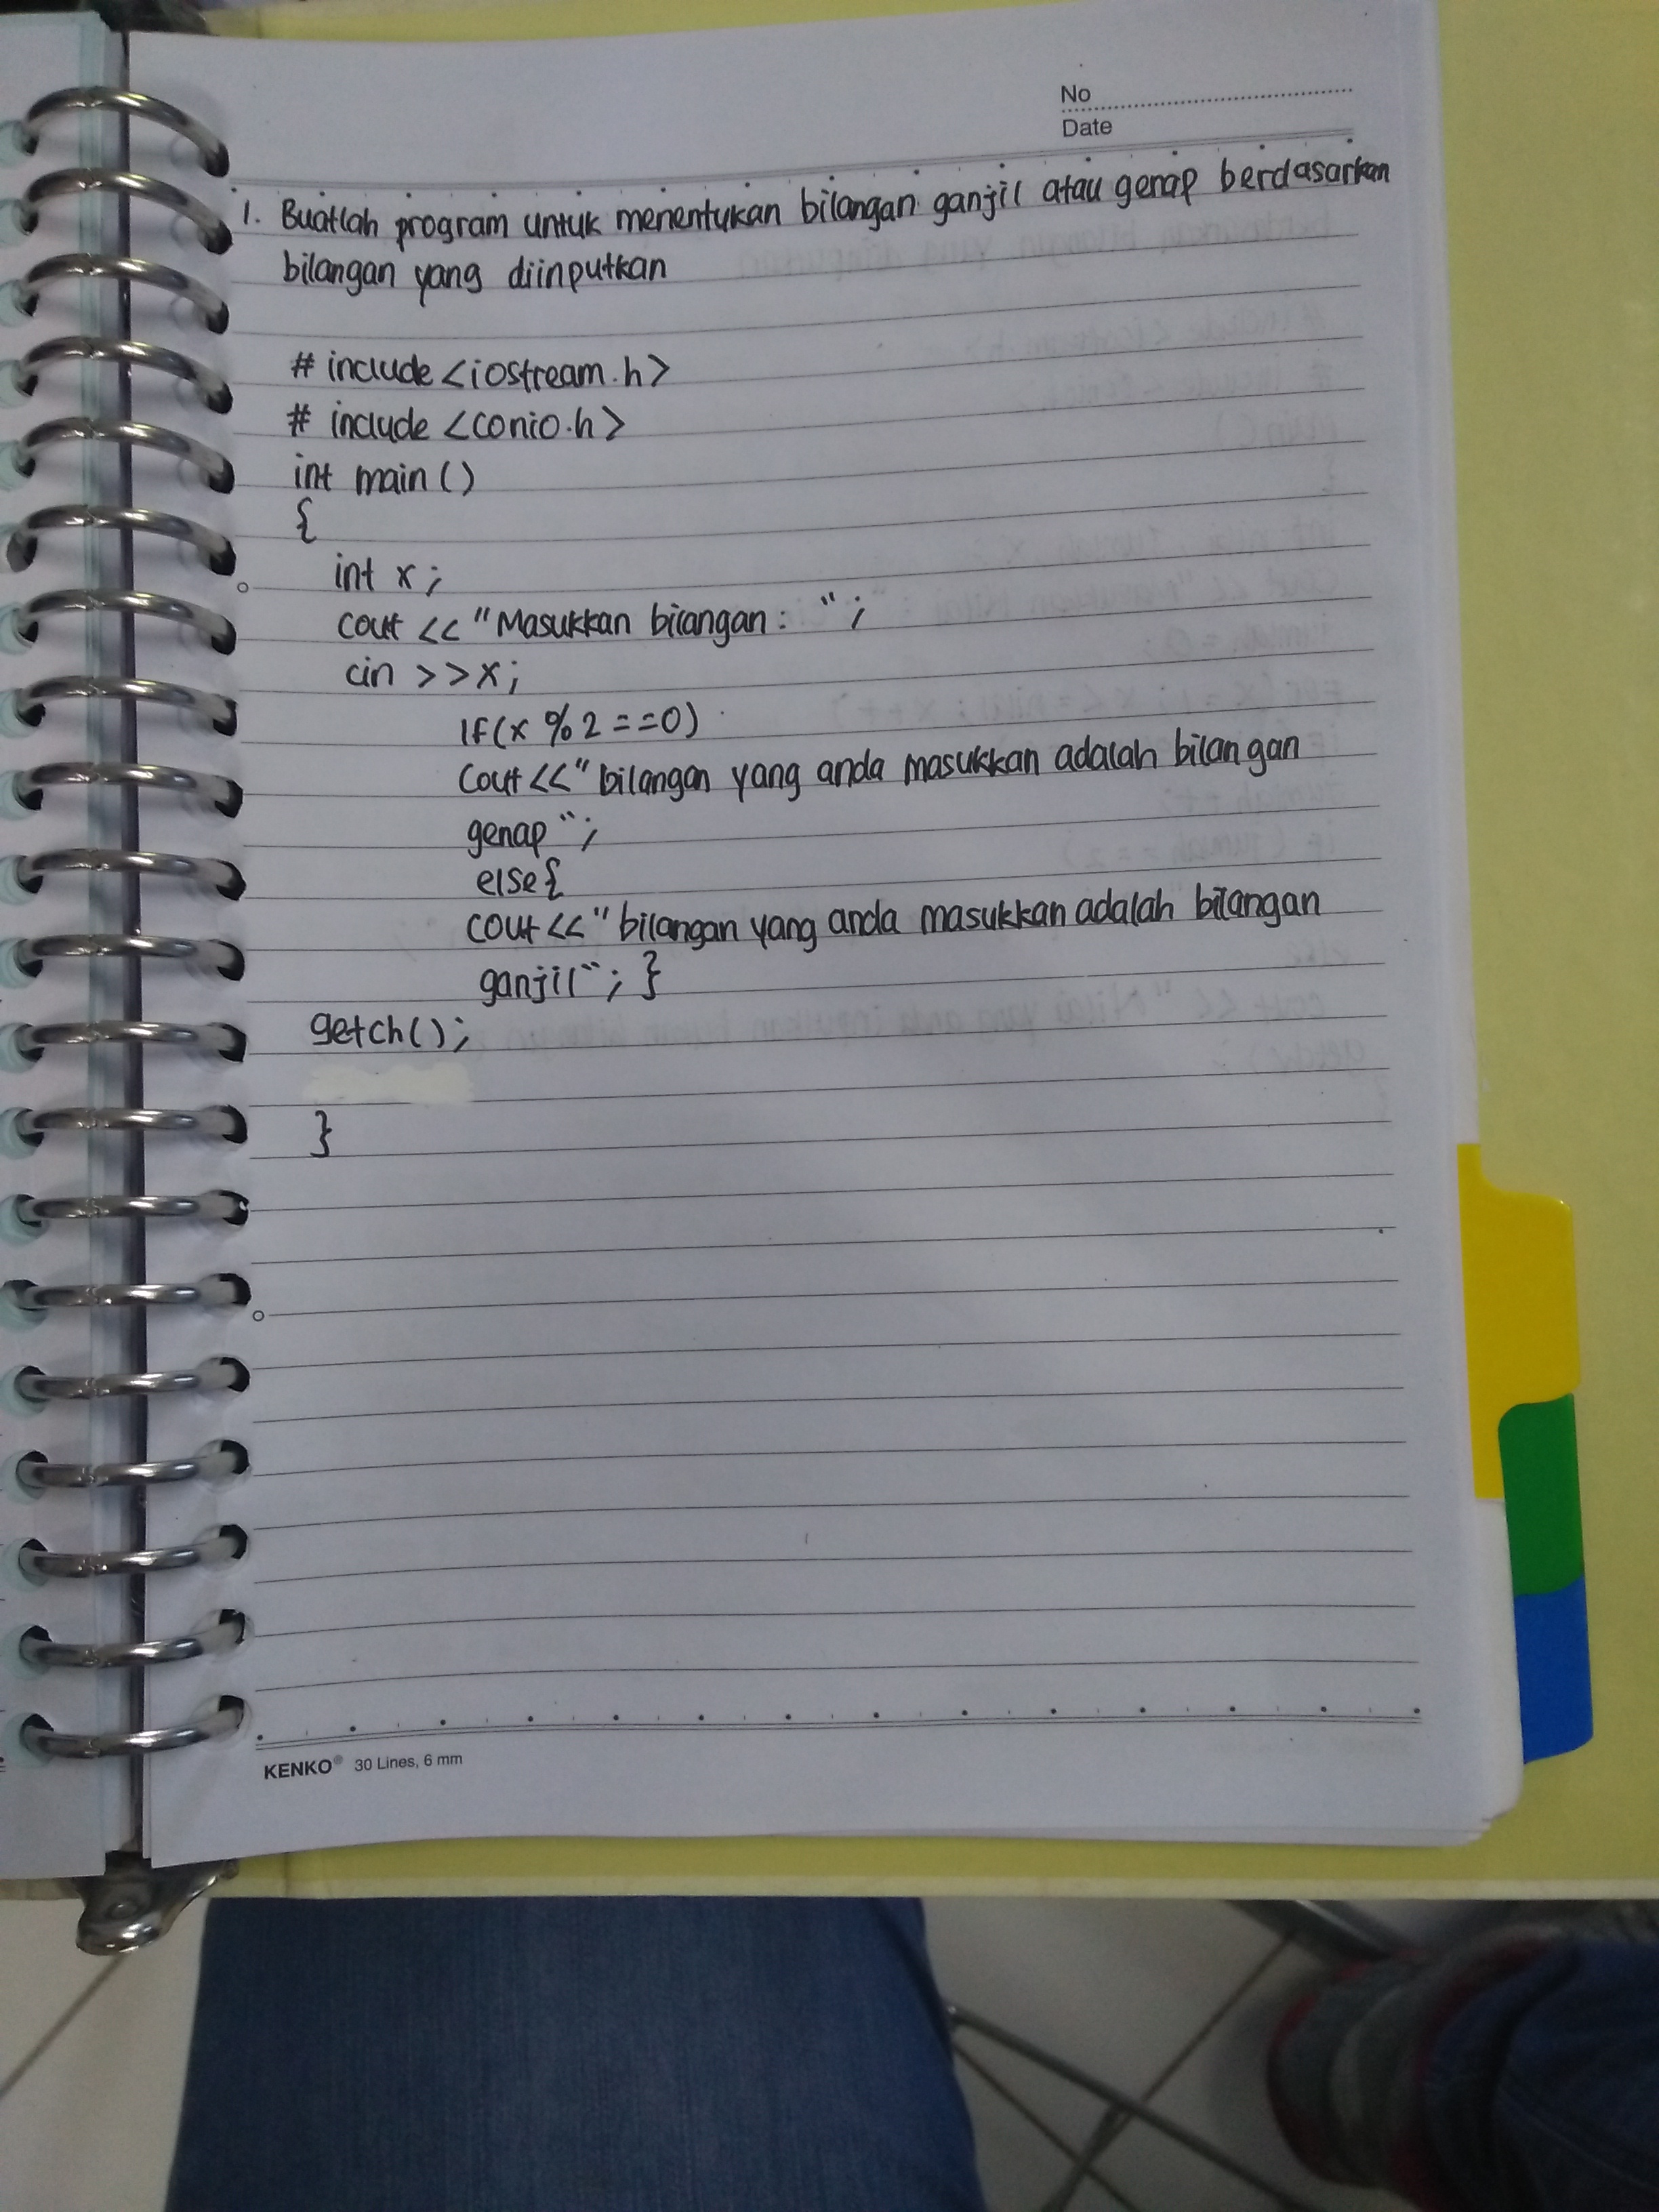 No
Date
1. Buatlah program untuk menentukan bilangan ganjil atau genap berdasarkan
bilangan yang diinputkan
# include <iostream.h>
# include <conio.h>
int main ()
{
int x ;
cout << "Masukkan bilangan : " ;
cin >> x ;
If (x % 2 == 0)
Cout << " bilangan yang anda masukkan adalah bilangan
genap " ;
else {
cout << " bilangan yang anda masukkan adalah bilangan
ganjil " ; }
getch() ;
}
KENKO® 30 Lines, 6 mm